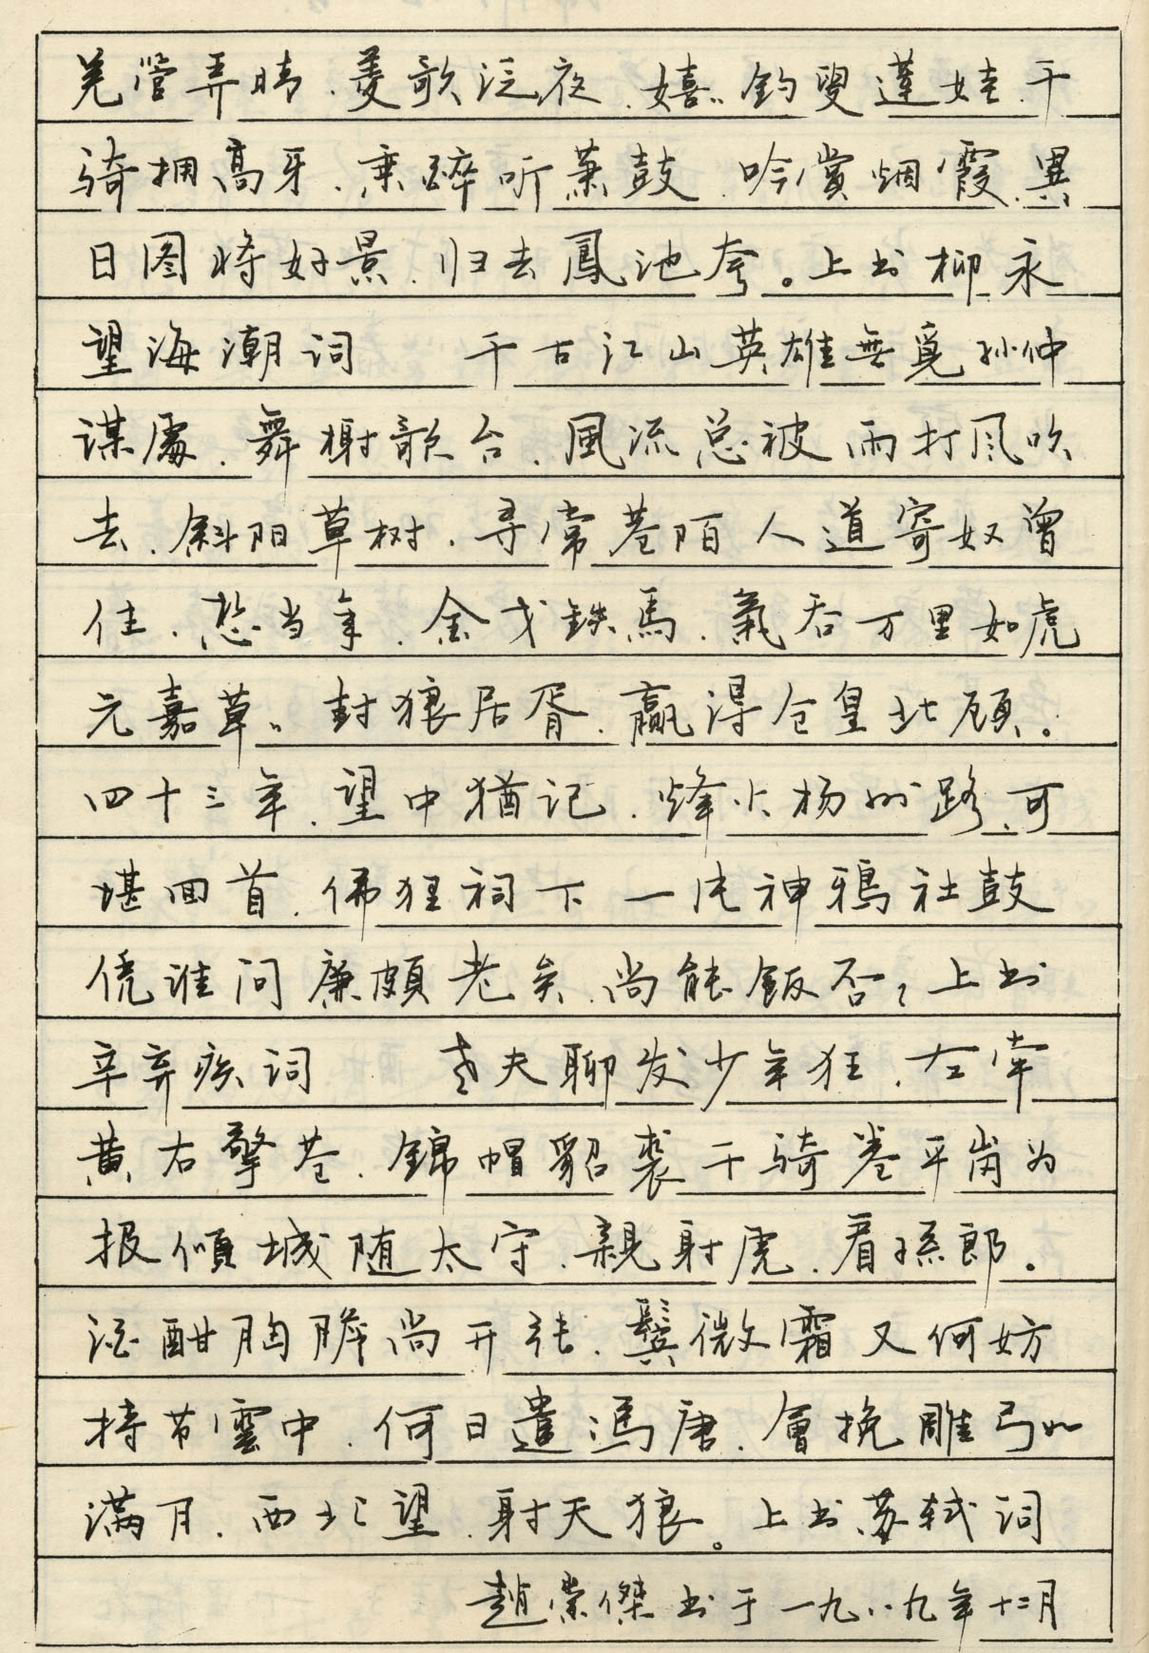 羌管弄晴.菱歌泛夜.嬉嬉钓叟蓮娃.千
骑拥高牙.乘醉听萧鼓.吟赏烟霞.異
日图将好景.归去鳳池夸。上书柳永
望海潮词 千古江山英雄無覓孙仲
谋處.舞榭歌台.風流总被雨打风吹
去.斜阳草树.寻常巷陌人道寄奴曾
住.想当年.金戈铁馬.氣吞万里如虎
元嘉草草.封狼居胥.赢得仓皇北顾。
四十三年.望中猶记.烽火杨州路.可
堪回首.佛狸祠下一片神鴉社鼓
凭谁问廉頗老矣.尚能飯否?上书
辛弃疾词 老夫聊发少年狂.左牵
黄右擎苍.錦帽貂裘千骑卷平岗为
报傾城随太守.親射虎.看孫郎。
酒酣胸膽尚开张.鬓微霜又何妨
持节雲中.何日遣馮唐.會挽雕弓如
满月.西北望.射天狼。上书苏轼词
趙崇傑书于一九八九年十二月